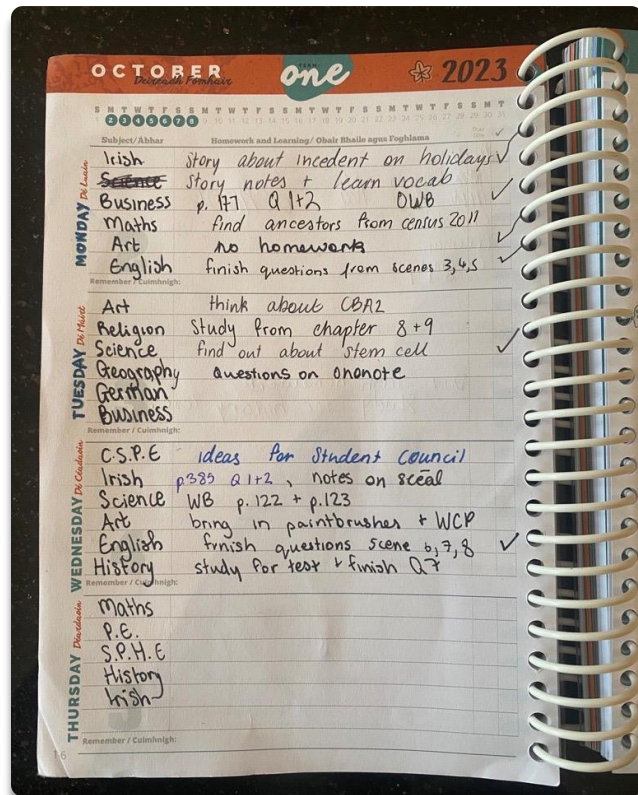 OCTOBER TEAM one 2023
Deireadh Fomhair
S M T W T F S S M T W T F S S M T W T F S S M T W T F S S M T
1 2 3 4 5 6 7 8 9 10 11 12 13 14 15 16 17 18 19 20 21 22 23 24 25 26 27 28 29 30 31
Subject/Ábhar Homework and Learning/ Obair Bhaile agus Foghlama
MONDAY Dé Luain
Irish Story about incedent on holidays ✓
Science Story notes + learn vocab
Business p. 177 Q 1+2 OWB ✓
Maths find ancestors from census 2011
Art no homework ✓
English finish questions from scenes 3,4,5 ✓
Remember / Cuimhnigh:
TUESDAY Dé Máirt
Art think about CBA2
Religion Study from chapter 8+9
Science find out about stem cell ✓
Geography Questions on Onenote
German
Business
Remember / Cuimhnigh:
WEDNESDAY Dé Céadaoin
C.S.P.E ideas for Student Council
Irish p385 Q1+2, notes on scéal
Science WB p. 122 + p.123
Art bring in paintbrushes + WCP
English finish questions scene 6,7,8 ✓
History study for test + finish Q7
Remember / Cuimhnigh:
THURSDAY Déardaoin
Maths
P.E.
S.P.H.E
History
Irish
Remember / Cuimhnigh:
16